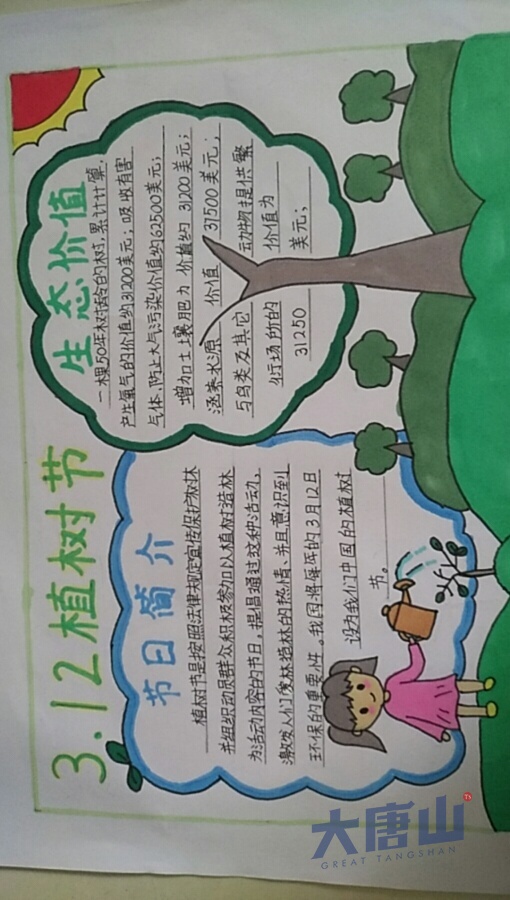 3.12植树节
节日简介
植树节是按照法律规定宣传保护树木
并组织动员群众积极参加以植树造林
为活动内容的节日,提高通过这种活动,
激发人们爱林造林的热情、并且意识到
环保的重要性。我国将每年的3月12日
设为我们中国的植树
节。
生态价值
一棵50年树龄的树,累计计算,
产生氧气的价值约31200美元;吸收有害
气体,防止大气污染价值约62500美元;
增加土壤肥力价值约31200美元;
涵养水源价值37500美元;
为鸟类及其它动物提供繁
衍场所的价值为
31250美元;
大唐山
GREAT TANGSHAN